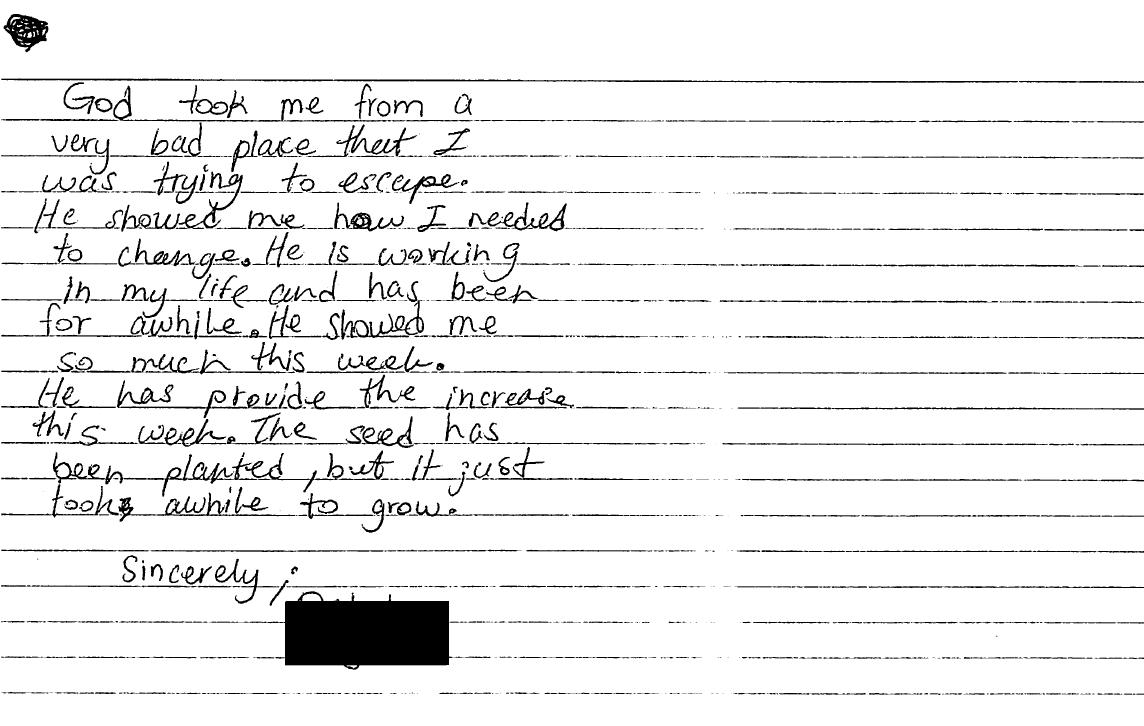 God took me from a
very bad place that I
was trying to escape.
He showed me how I needed
to change. He is working
in my life and has been
for awhile. He showed me
so much this week.
He has provide the increase
this week. The seed has
been planted, but it just
took awhile to grow.
Sincerely;